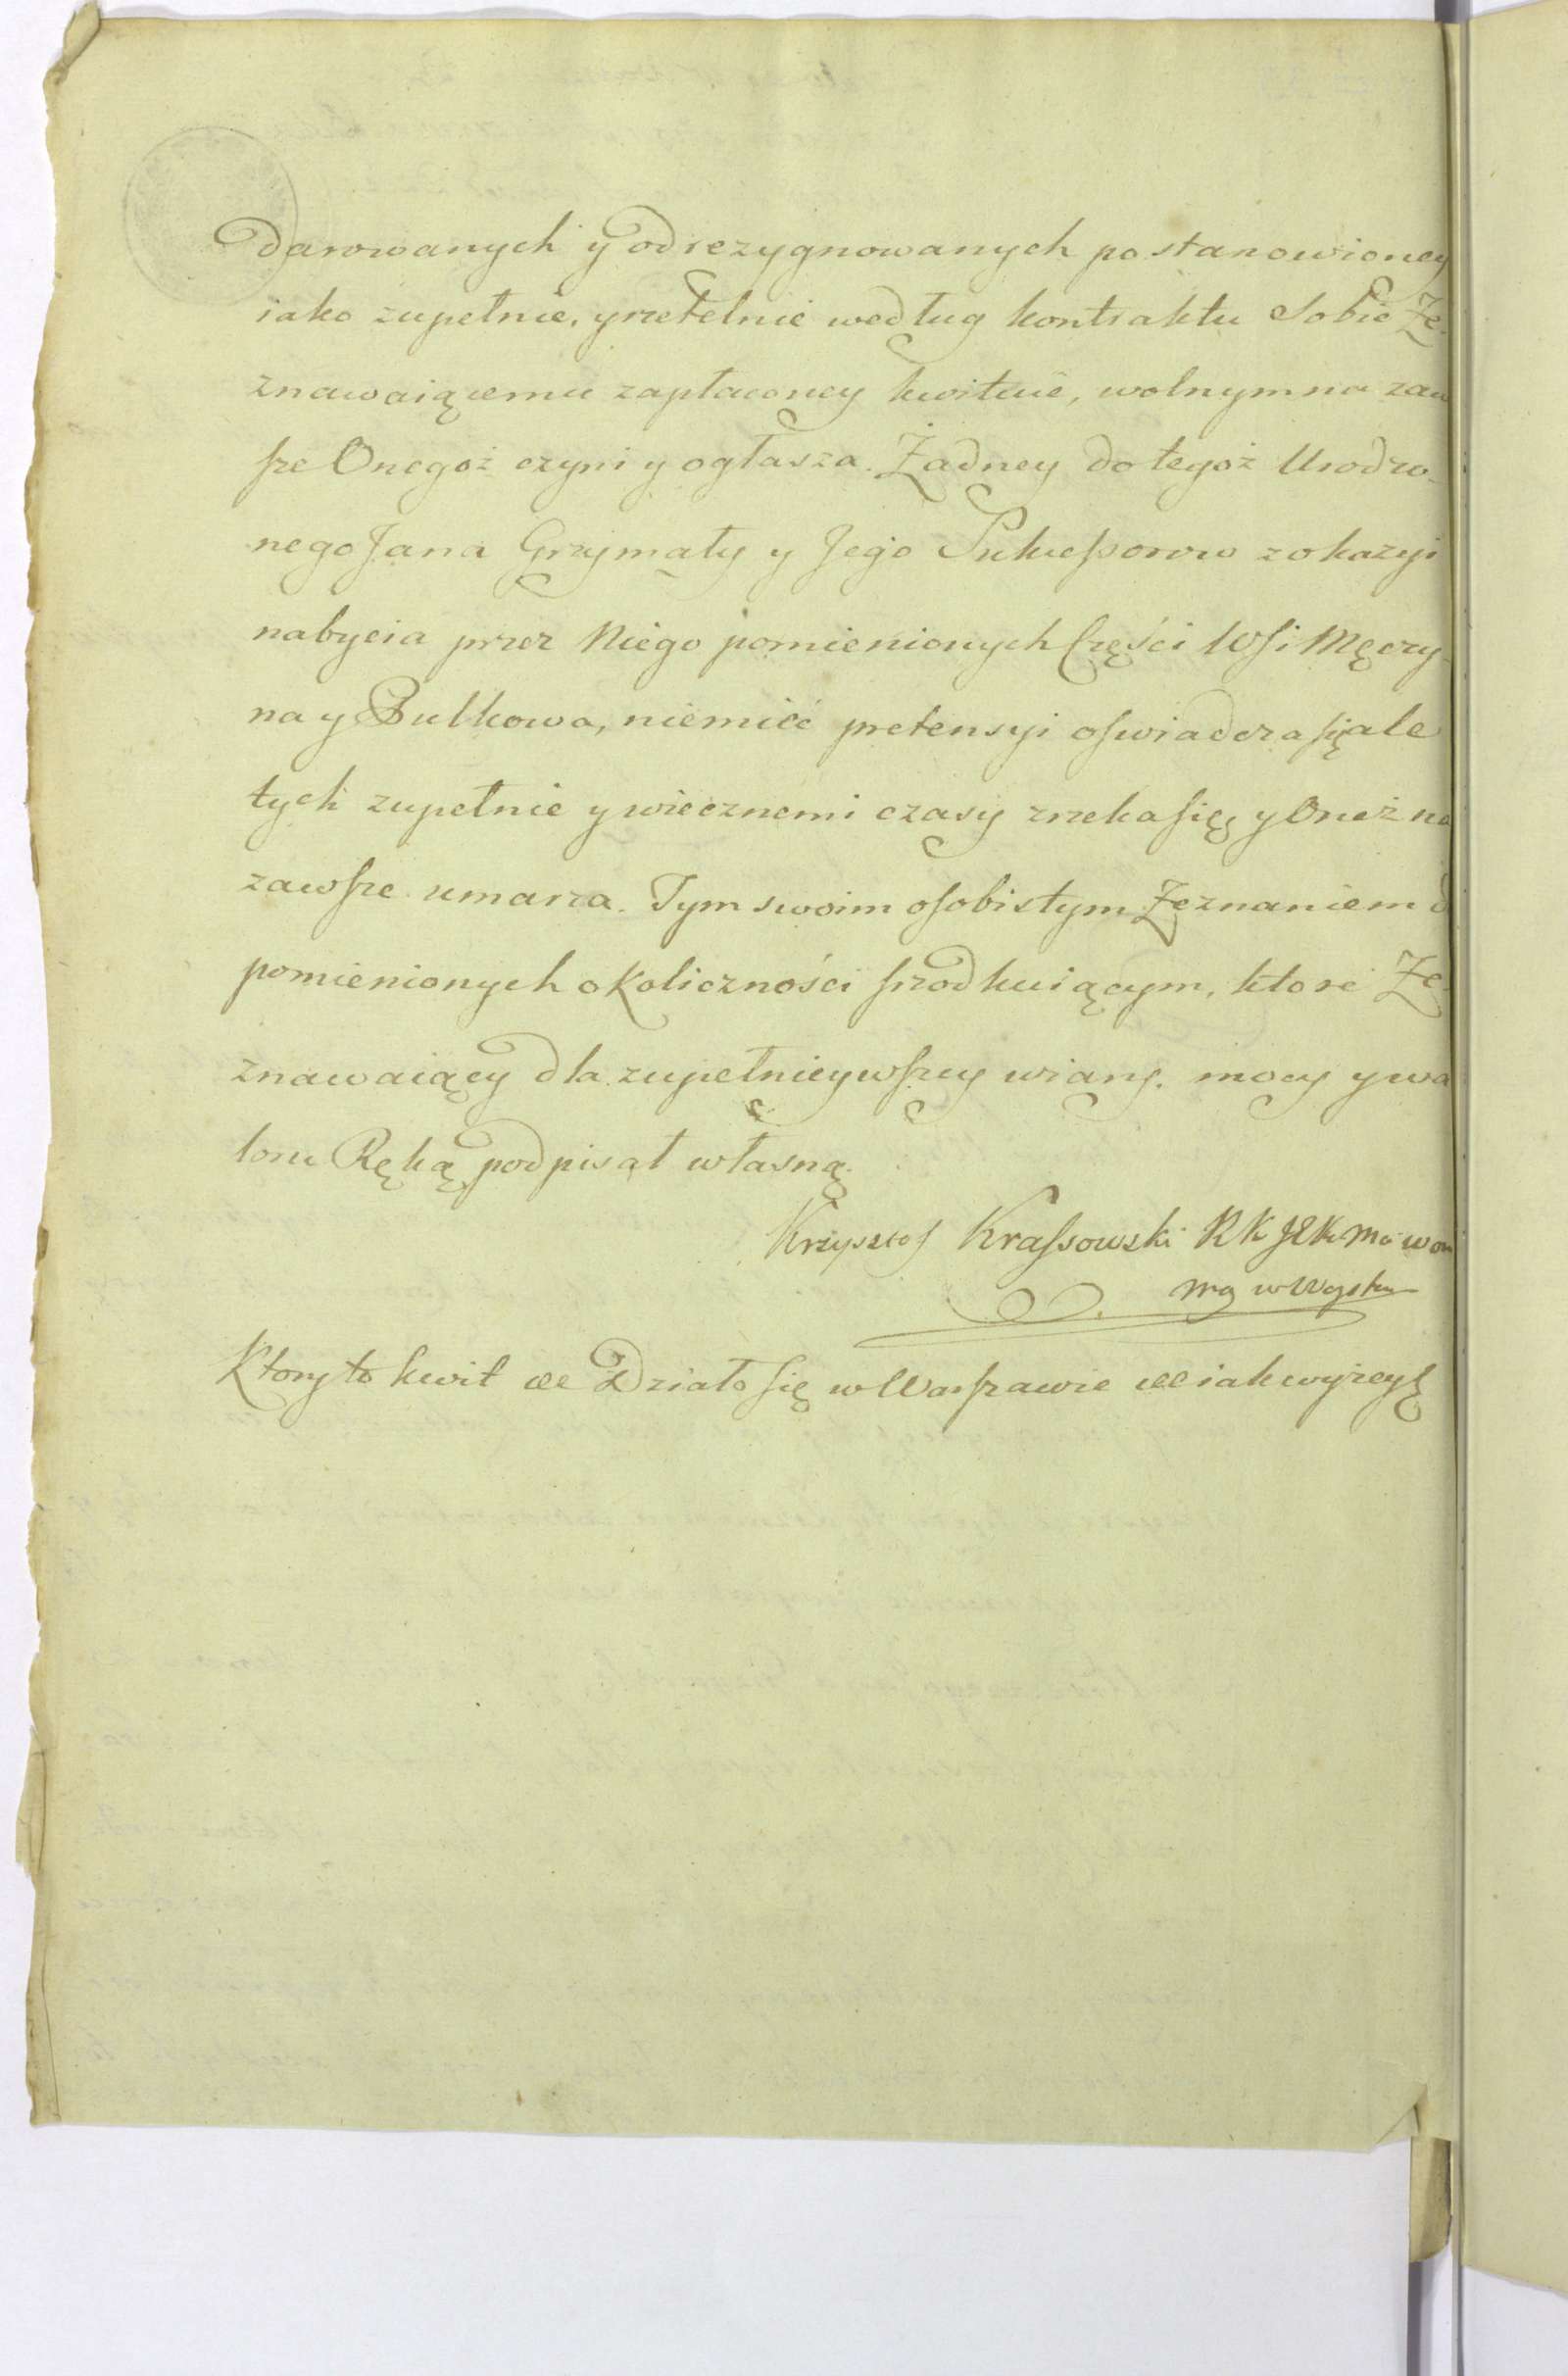 Darowanych y odrezygnowanych postanowioney
iako zupełnie, y rzetelnie według kontraktu Sobie Ze-
znawaiącemu zapłaconey kwituie, wolnym na zaw
sze Onegoż czyni y ogłasza. Żadney do tegoż Urodzo-
nego Jana Grzymały y Jego Sukcessorow z okazyi
nabycia przez Niego pomienionych Części Wsi Męczy-
na y Bulkowa, niemieć pretensyi oswiadcza się ale
tych zupełnie y wiecznemi czasy zrzeka się, y Oneż na
zawsze umarza. Tym swoim osobistym Zeznaniem
pomienionych okoliczności srzodkuiącym, ktore Ze-
znawaiący dla zupełnieyszey wiary, mocy y wa
loru Ręką podpisał własną.
Krzysztof Krassowski
Ktory to kwit &c Działo się w Warszawie &c iak wyżey